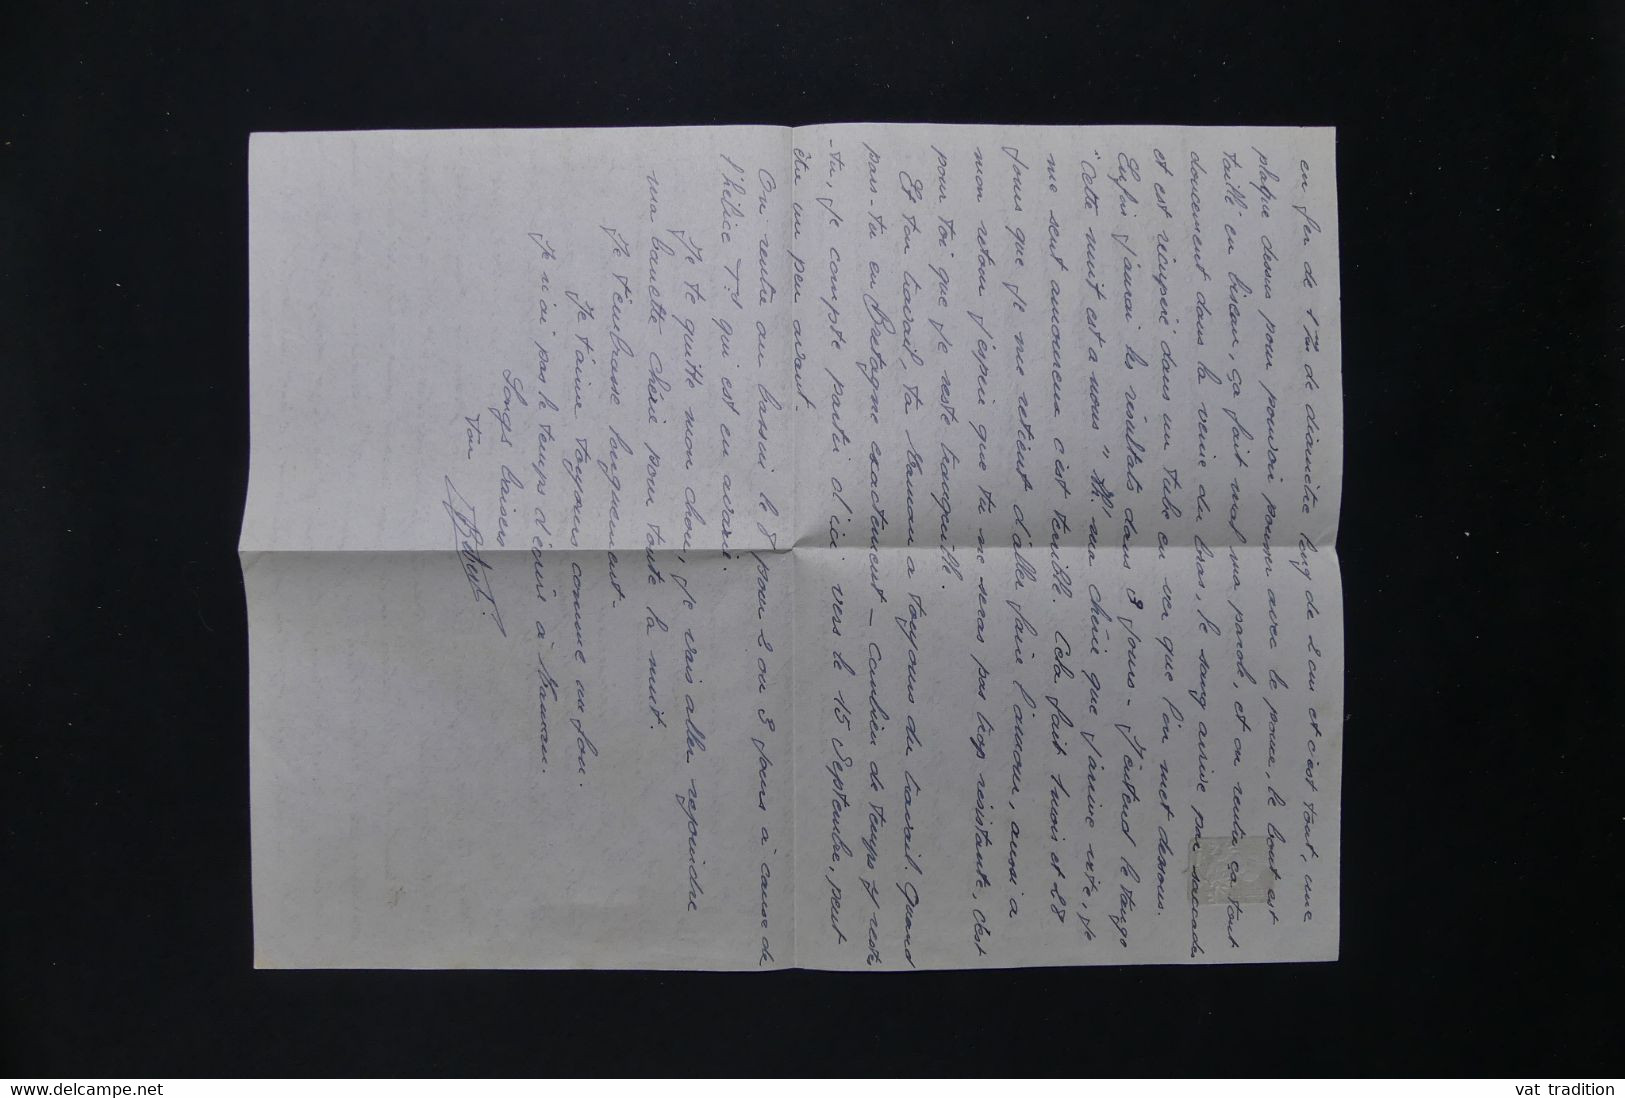 en fer de 1 mm de diamètre long de 2 cm et c'est tout, une
plaque dessus pour pouvoir pousser avec le pouce, le bout est
taillé en biseau, ça fait mal ma parole, et on rentre ça tout
doucement dans la veine du bras, le sang arrive par saccade
et est récupéré dans un tube en ver que l'on met dessous.
Enfin j'aurai les résultats dans 3 jours - J'entend le tango
"Cette nuit est a nous" ma chérie que j'arrive vite, je
me sent amoureux c'est terrible. Cela fait 1 mois et 28
jours que je me retient d'aller faire l'amour, aussi a
mon retour j'espère que tu ne seras pas trop résistante, c'est
pour toi que je reste tranquille.
Et ton travail, ta Maman a toujours du travail. Quand
pars-tu en Bretagne exactement - Combien de temps y reste
-tu, je compte partir d'ici vers le 15 Septembre, peut
être un peu avant.
On rentre au bassin le 8 pour 2 ou 3 jours à cause de
l'hélice Td qui est en avarie.
Je te quitte mon chou, je vais aller rejoindre
ma bannette chérie pour toute la nuit.
Je t'embrasse longuement.
Je t'aime toujours comme un fou.
Je n'ai pas le temps d'écrire à Maman.
Longs baisers
Ton
vat tradition
delcampe.net